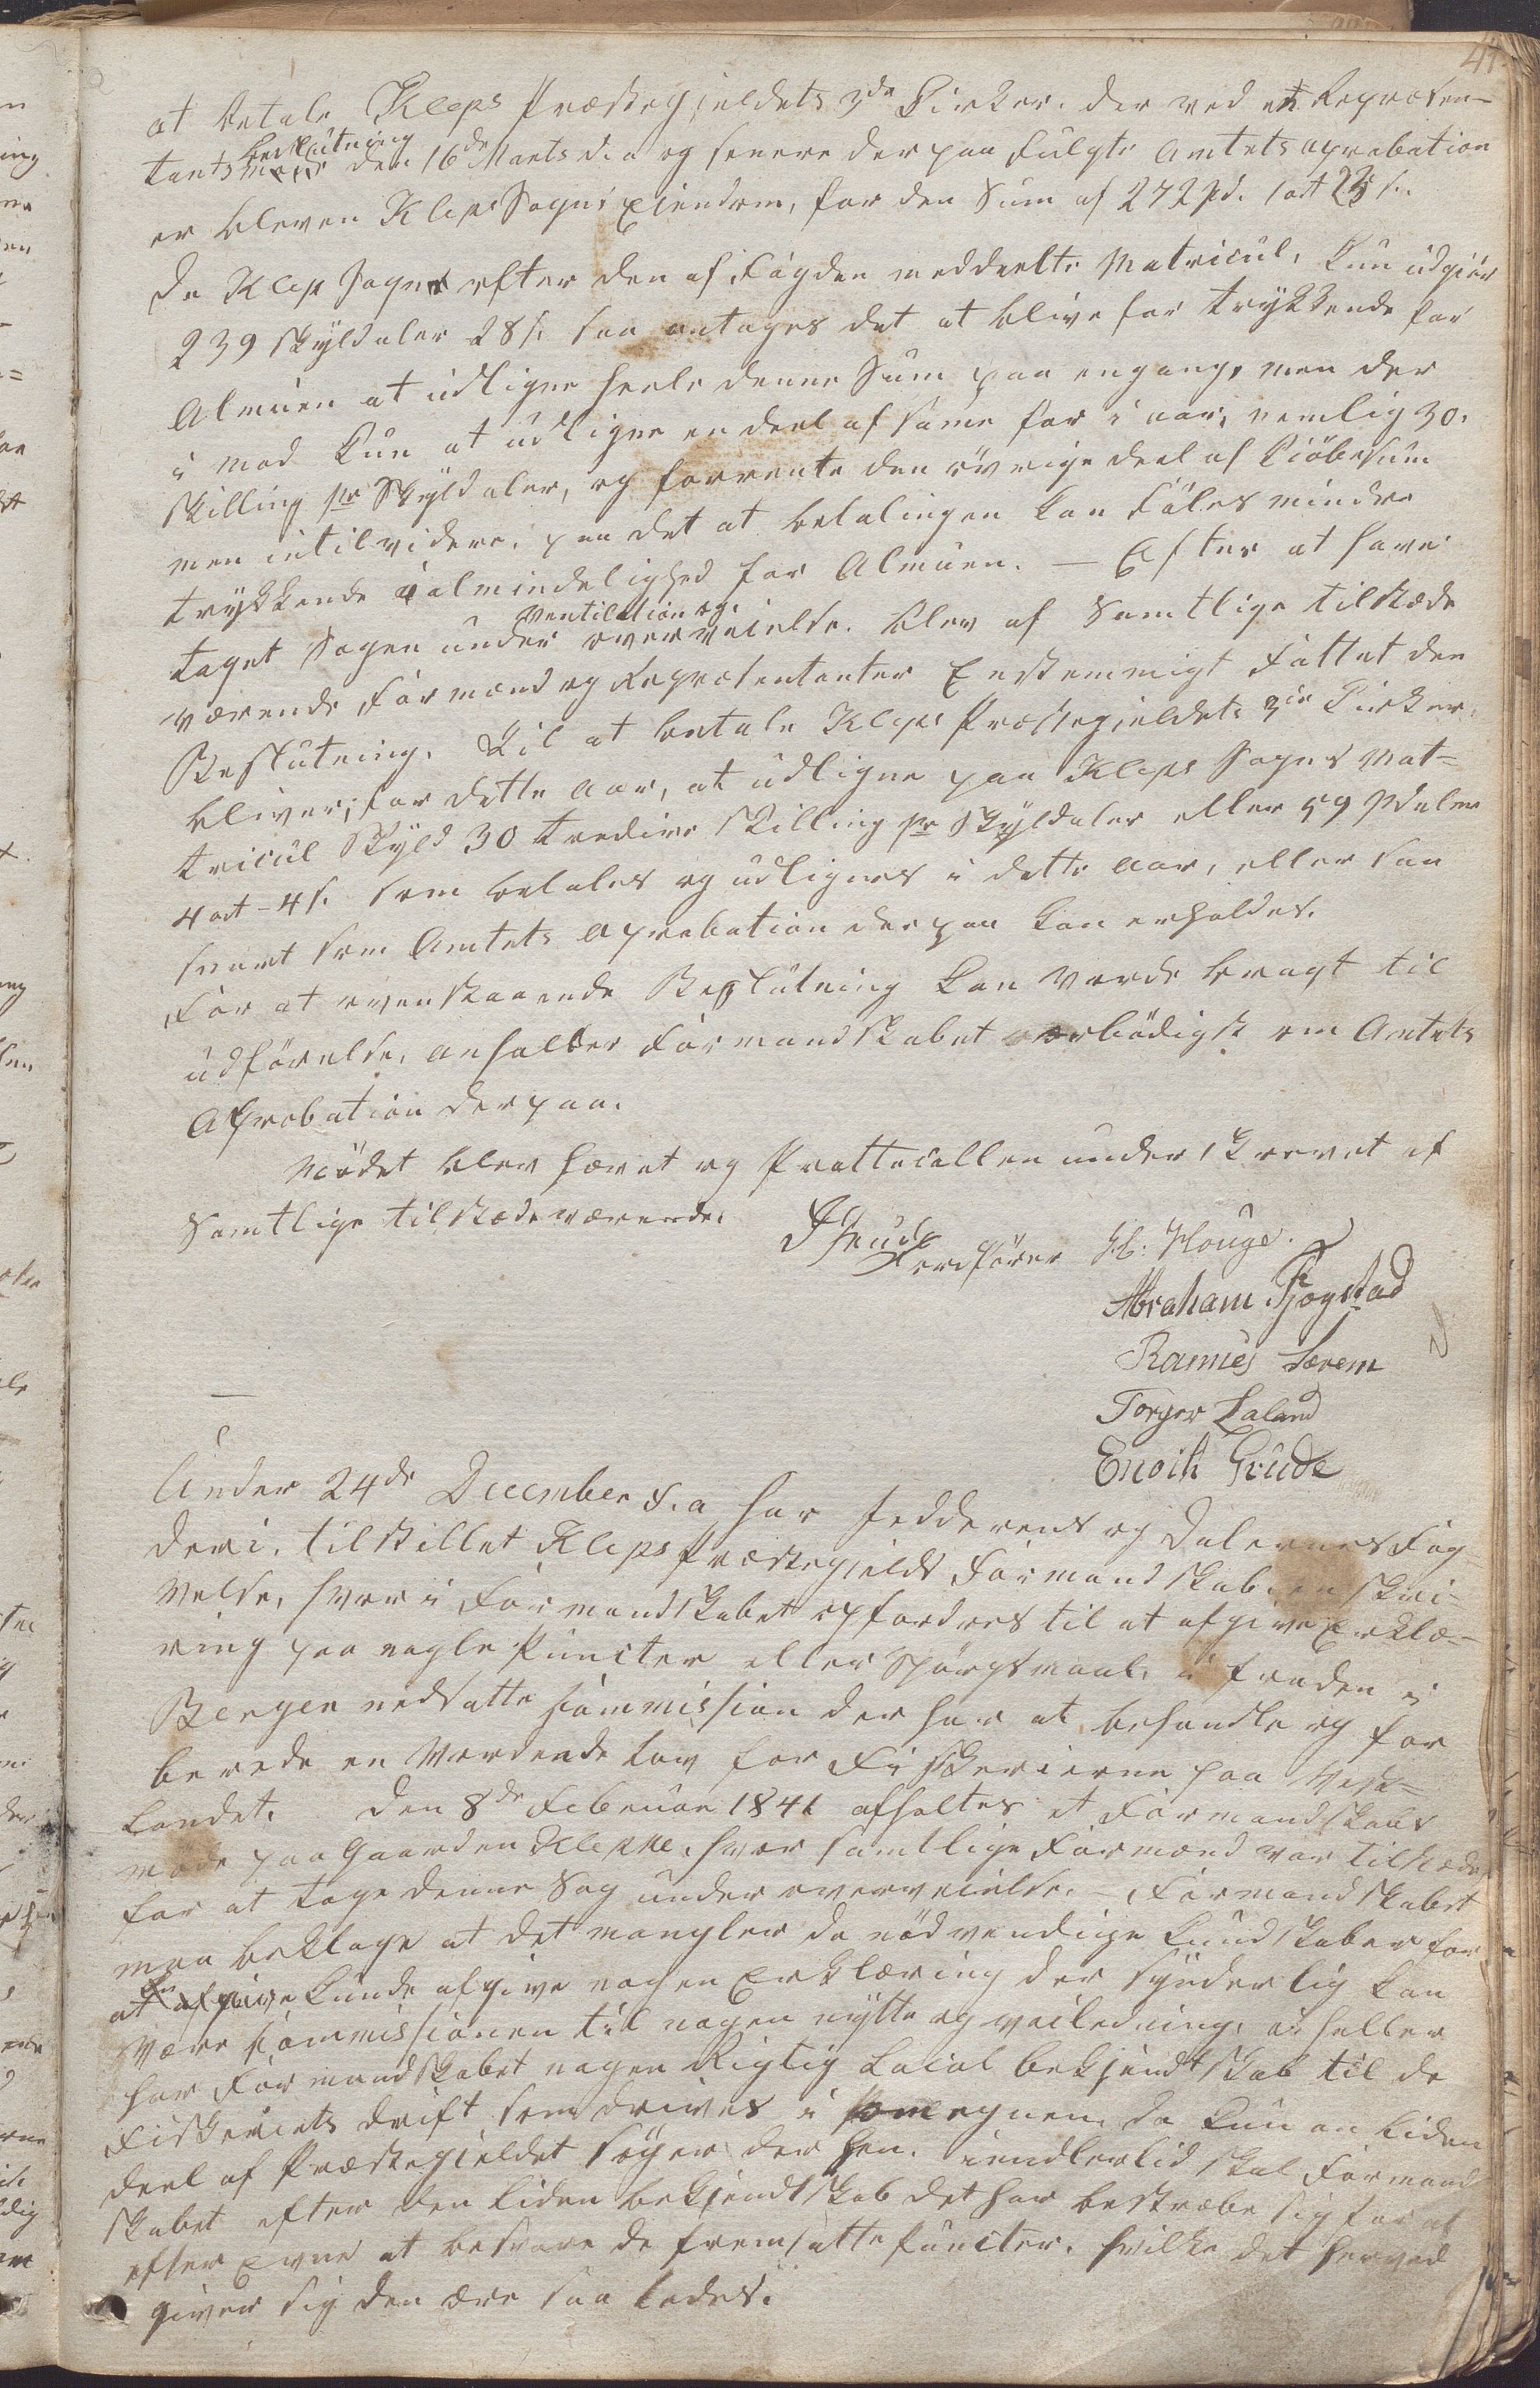 41.
at betale Kleps Præstegjeldets 3de Kirker. der ved et Repræsen-
Beslutning
tants møde den 16de Marts d. a og senere derpaa fulgte Amtets aprobation
er bleven Klep Sogns Eiendom, for den Sum af 272 Spd. 1 ort 23 s.
Da Klep Sogn efter den af Fogden meddeelte Matricul, kun udgiør
239 Skyldaler 28 s. saa antages det at blive for trykkende for
Almuen at udligne heele denne Sum paa engang, men der
i mod kun at udligne en deel af samme for i aar, nemlig 30.
Skilling pr Skyldaler, og forrente den övrige deel af Kiöbesum
men indtil videre, paa det at betalingen kan föles mindre
trykkende i almindelighed for Almuen. — Efter at have
Ventilation og
taget Sagen under overveielse. blev af Samtlige tilstæde
værende Formænd og Repræsentanter Enstemmigt Fattet den
Beslutning. Til at betale Kleps Præstegjeldets 3de Kirker
bliver, for dette Aar, at udligne paa Kleps Sogns Mat-
tricul Skyld 30 tredive Skilling pr Skyldaler eller 59 Spdaler
4 ort - 4 s. som betales og udlignes i dette Aar, eller saa
snart som Amtets aprobation derpaa kan erholdes.
For at ovenstaaende Beslutning kan vorde bragt til
udförelse, anholder Formandskabet ærbödigst om Amtets
Aprobation derpaa.
Mödet blev hævet og Prottocollen underskrevet af
Samtlige tilstædeværende.
Ordförer
H: Houge.
Abraham Fjogstad
Rasmus Særem
Torger Laland
Enoch Grude
Under 24de December f. a har Jedderens og Dalernes Fog-
deri, tilstillet Kleps Præstegjelds Formandskab en skri-
velse, hvori Formandskabet opfordres til at afgive Erklæ-
ring paa nogle Puncter eller Spörgsmaal, i fra den i
Bergen nedsatte Commission der har at behandle og for
berede en Vordende Lov for Fiskerierne paa Vest-
landet. Den 8de Februar 1841 afholtes et Formandskabs
möde paa Gaarden Kleppe, hvor samtlige Formænd var tilstæde
for at tage denne Sag under overveielse. - Formandskabet
maa beklage at det mangler de nödvendige Kundskaber for
at kunde afgive nogen Erklæring der synderlig kan
være Commissionen til nogen nytte og veiledning, ei heller
har Formandskabet nogen Rigtig Local bekjendtskab til de
Fiskeriets drift som drives i omegnen, da kun en liden
deel af Præstegjeldet söger der hen. imidlertid skal Formand
skabet efter den liden bekjendtskab det har bestræbe sig for at
efter Evne at besvare de fremsatte Puncter. hvilke det herved
giver sig den ære saa ledes: